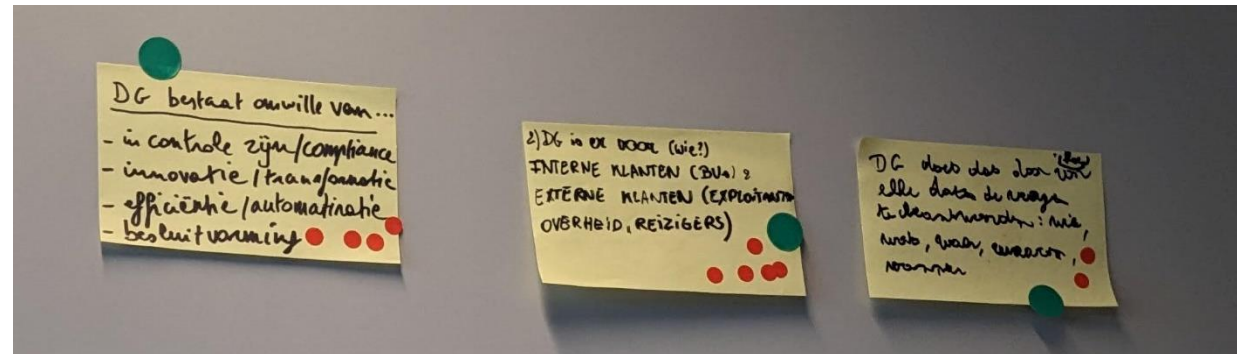 DG bestaat omwille van...
- in controle zijn/compliance
- innovatie/transformatie
- efficiëntie/automatisatie
- besluitvorming
2) DG is er VOOR (wie?)
INTERNE KLANTEN (BUs) &
EXTERNE KLANTEN (EXPLOITANTEN
OVERHEID, REIZIGERS)
DG does das door
(hoe)
elke data de vragen
te beantwoorden: wie,
wat, waar, waarom,
wanneer